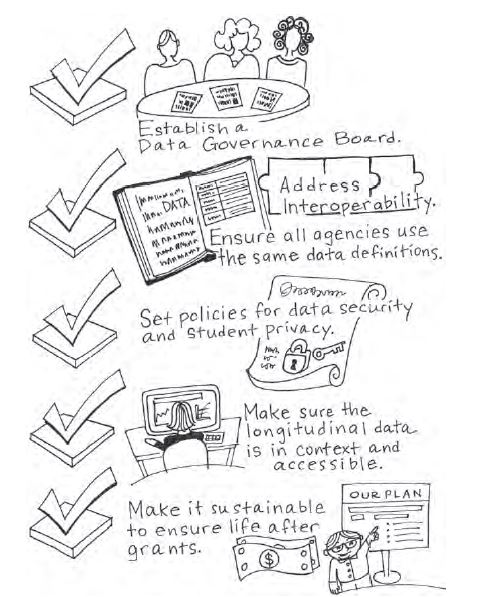 Establish a
Data Governance Board.
DATA
Address
Interoperability.
Ensure all agencies use
the same data definitions.
Set policies for data security
and student privacy.
Make sure the
longitudinal data
is in context and
accessible.
OUR PLAN
Make it sustainable
to ensure life after
grants.
$